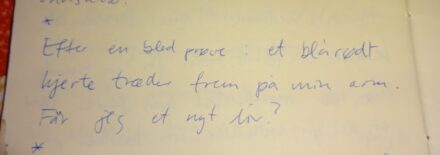 *
Efter en blod prøve : et blårødt
hjerte træder frem på min arm.
Får jeg et nyt liv?
*